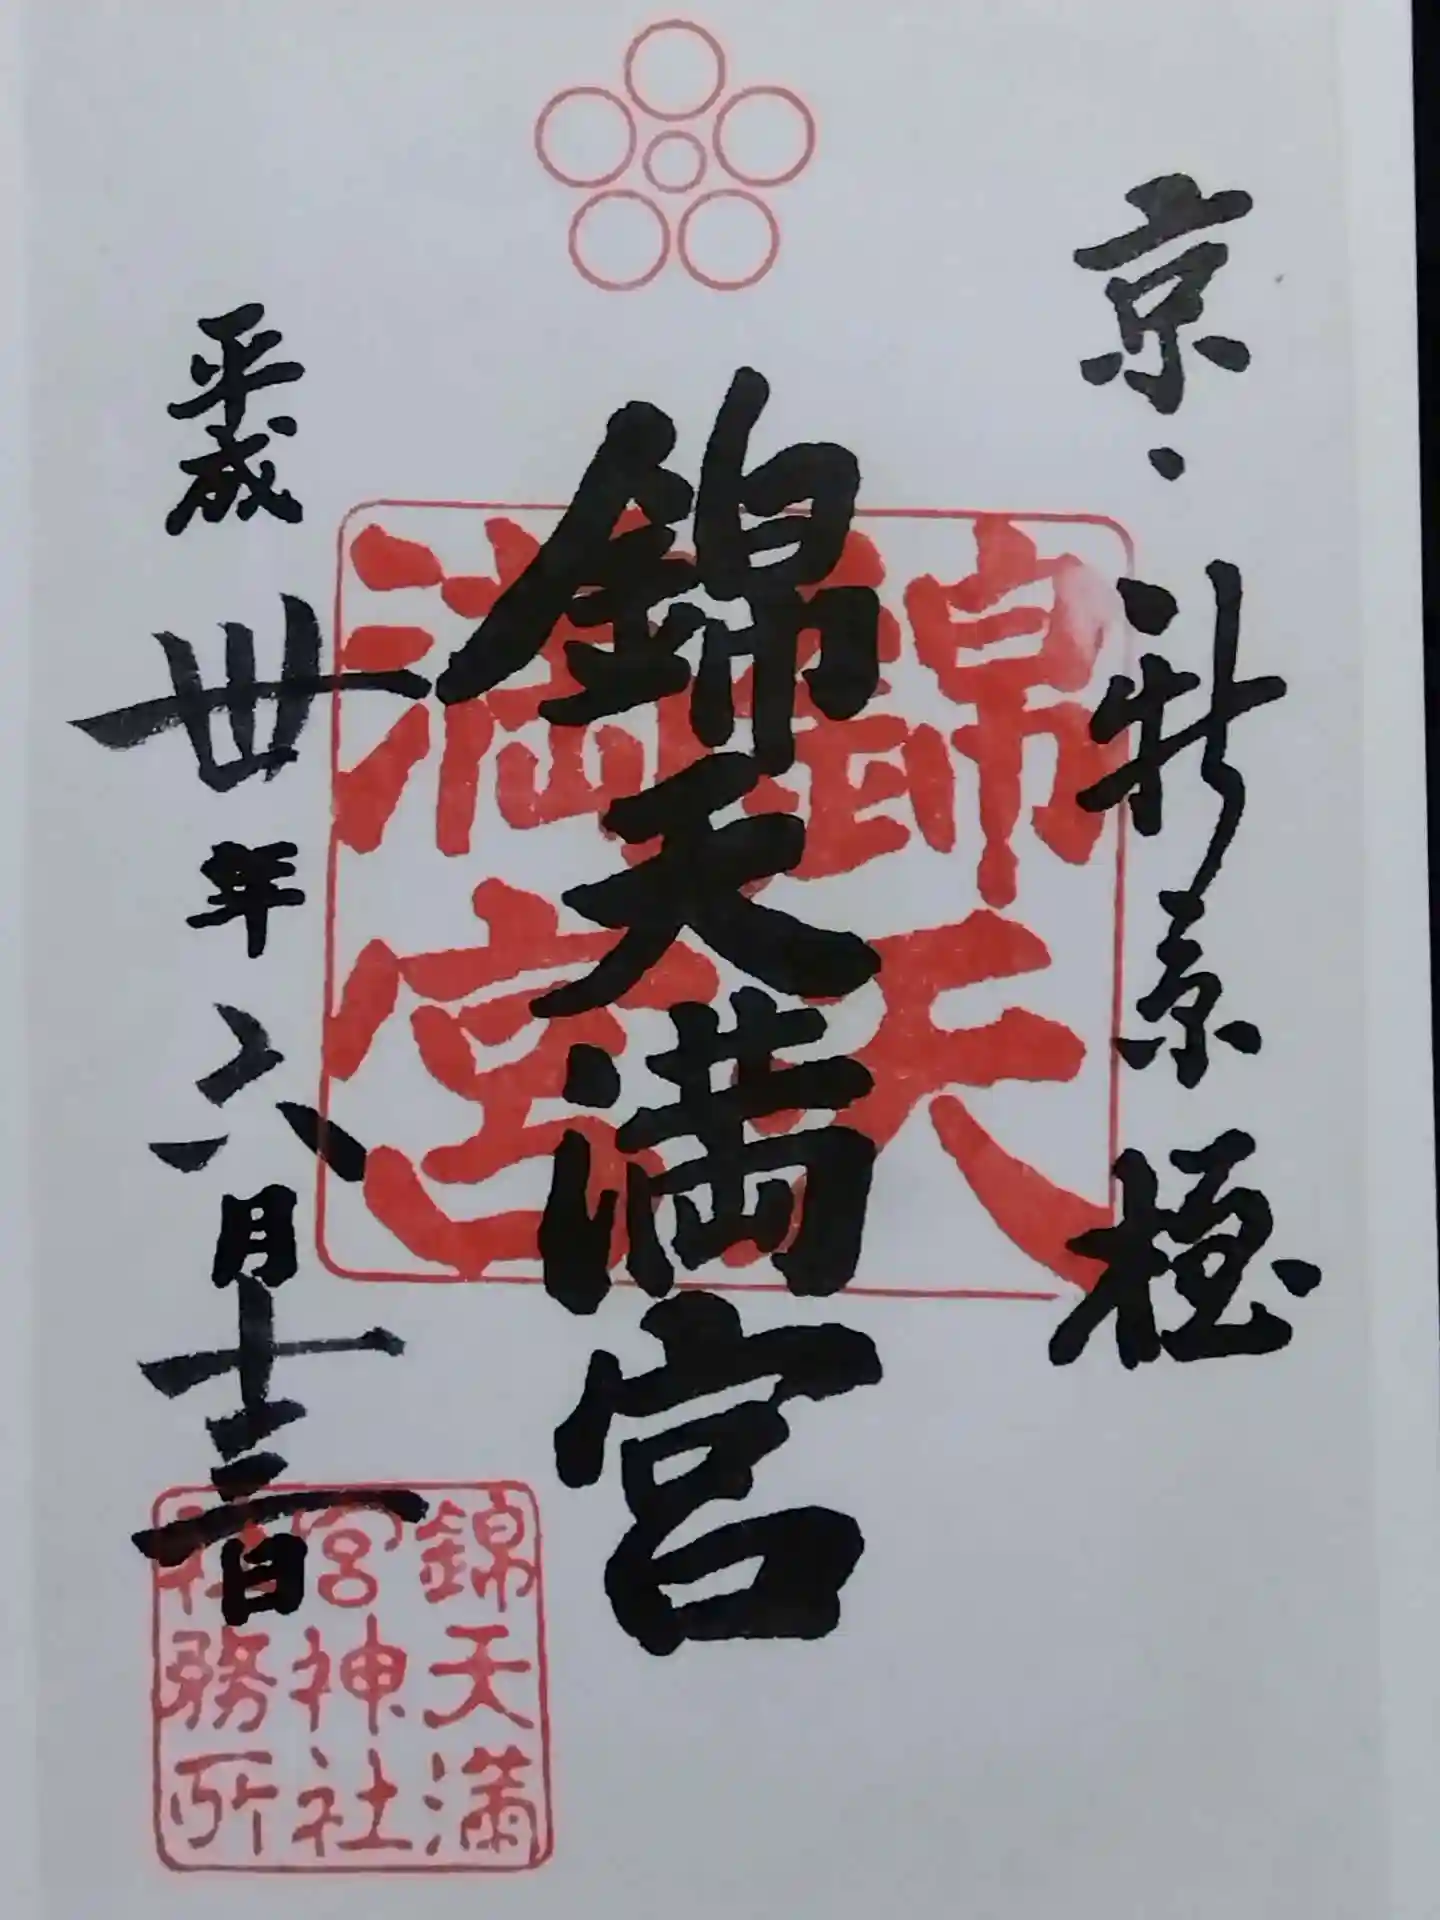 京・新京極
錦天満宮
平成卅年六月十三日
錦天
満宮
錦天満
宮神社
社務所